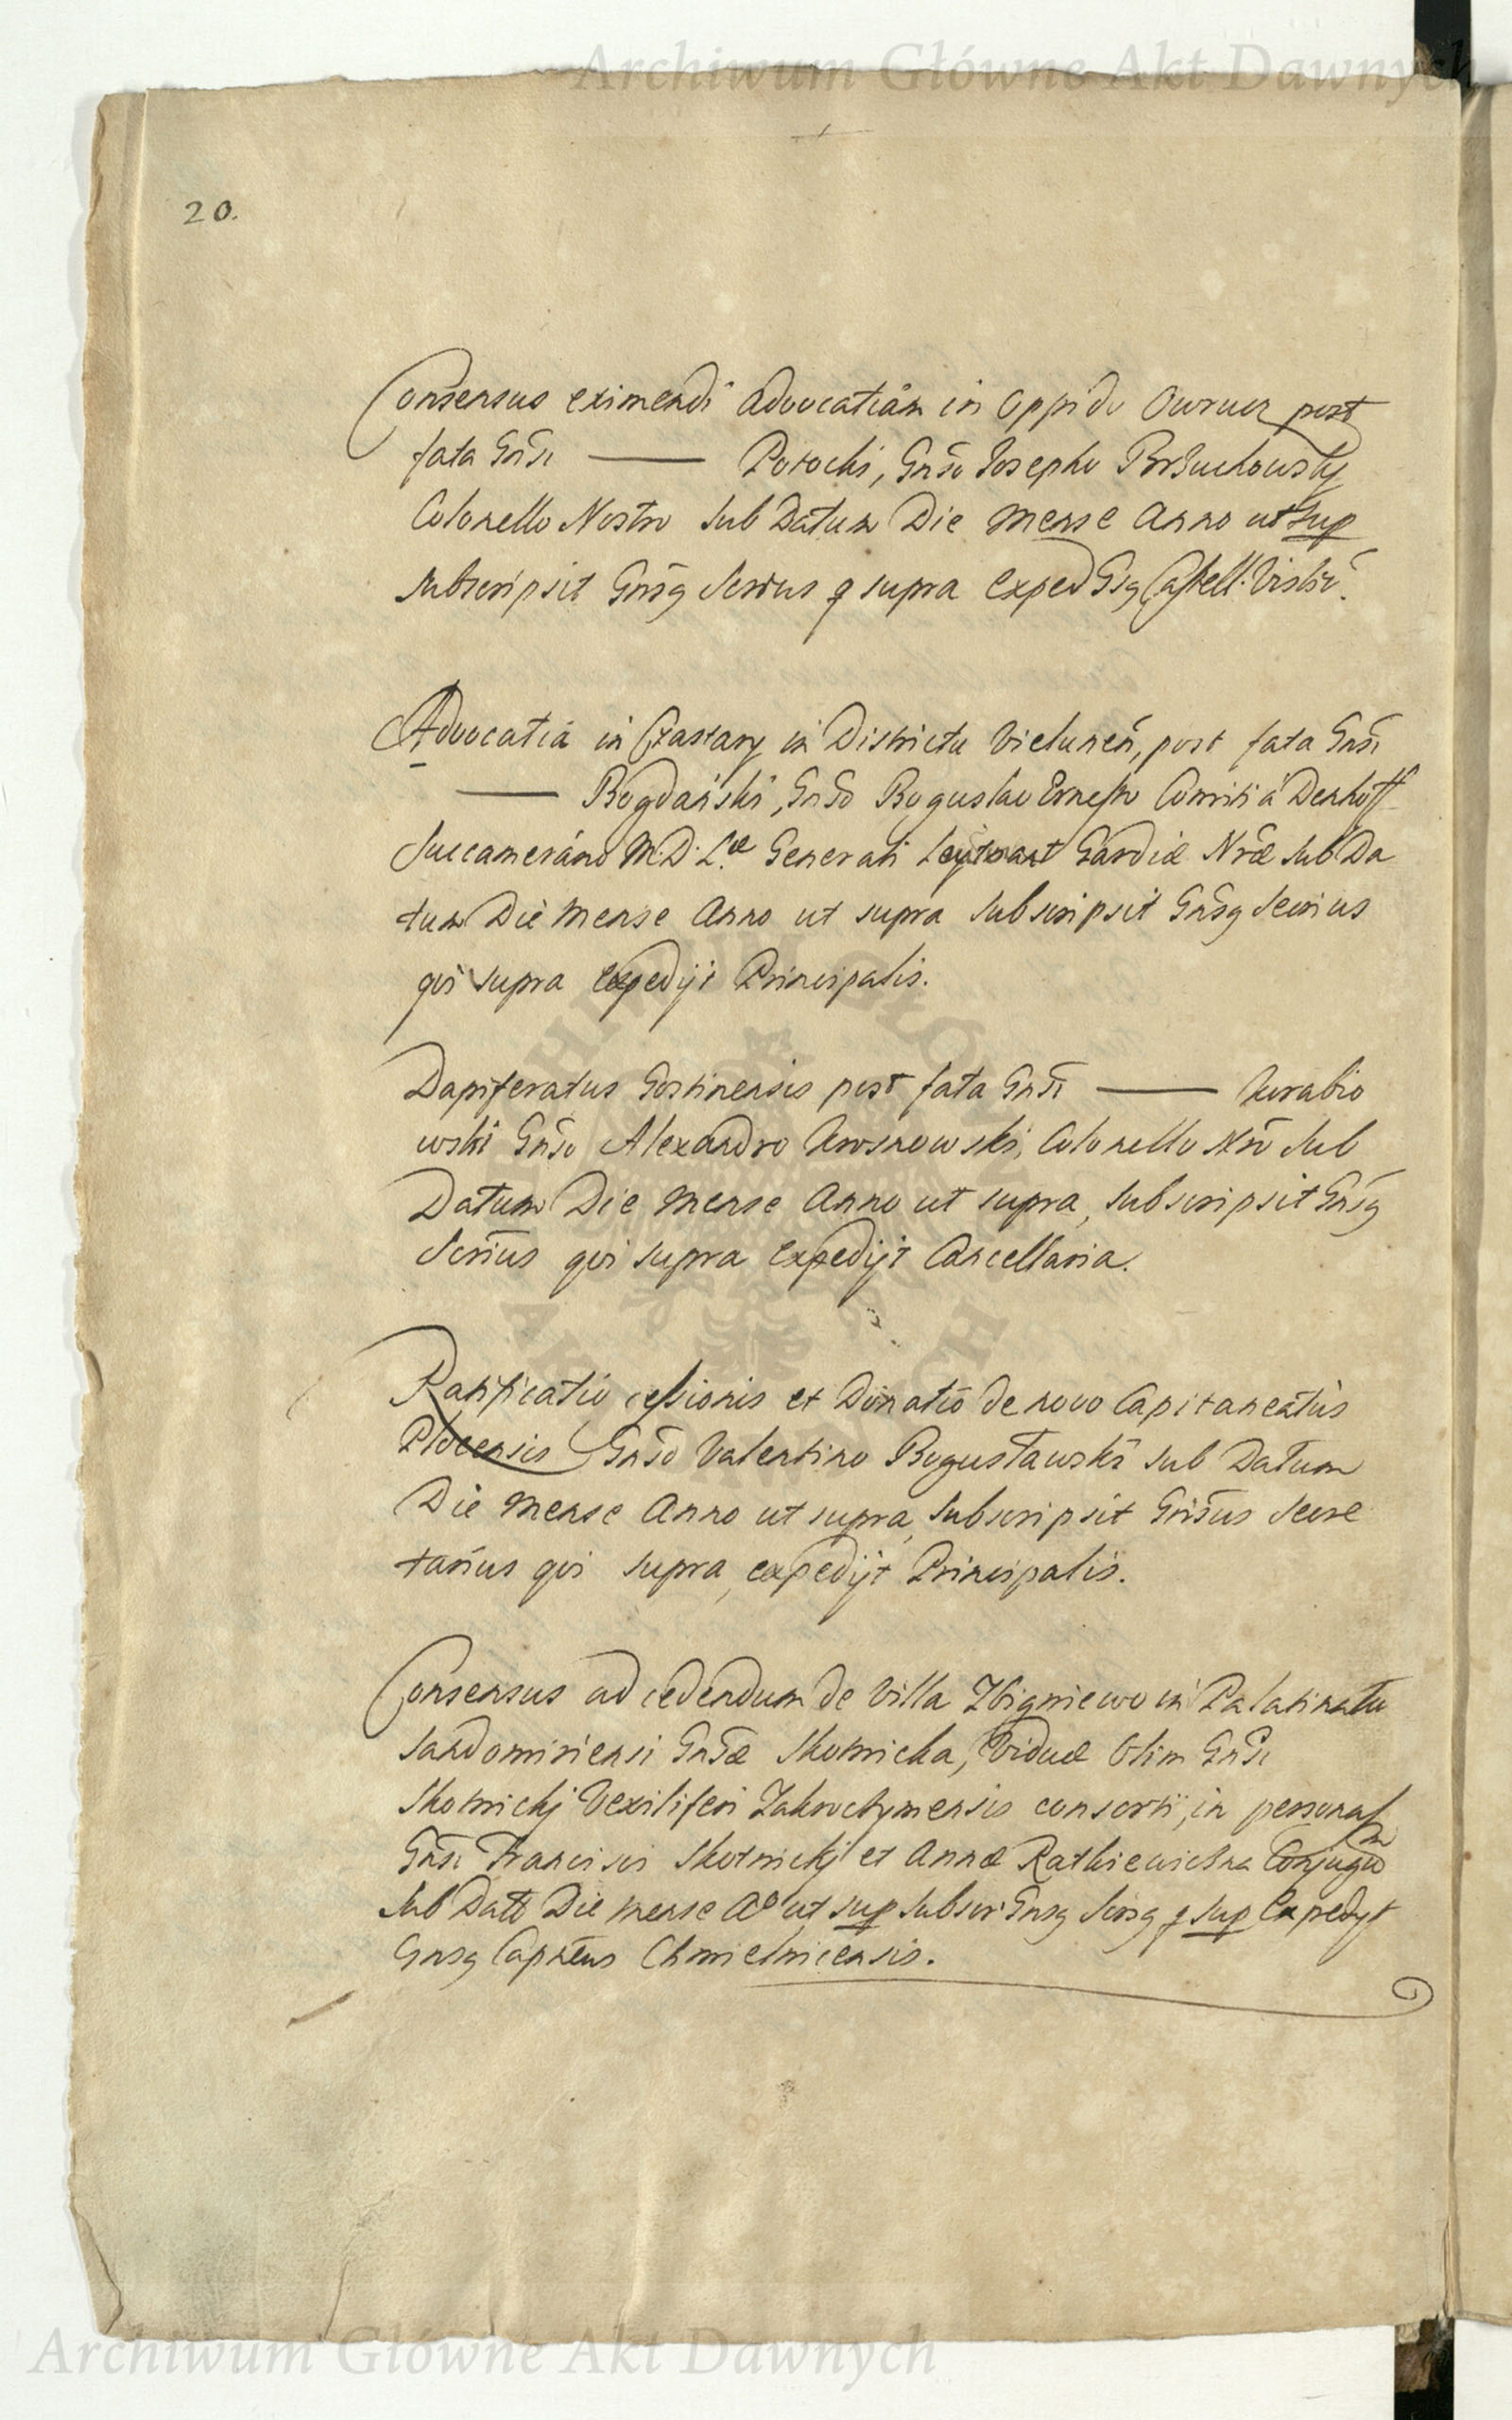 Archiwum Główne Akt Dawnych
20.
Consensus eximendi advocatiam in Oppido Owrucz post
fata Gnsi —— Potocki, Gnso Josepho
Colonello Nostro sub Datum Die Mense Anno ut sup
subscripsit Gnsq Secrius q supra exped Gsq Castell.
Advocatia in Czastary in Districtu Vielunen, post fata Gnsi
—— Bogdański, Gnso Boguslao Ernesto Comiti á Denhoff
Succamerário M.D.L.æ Generali Leytnant Gardiæ Nræ sub Da
tum Die Mense Anno ut supra subscripsit Gnsq Secrius
qui supra expedijt Principalis.
Dapiferatus Gostinensis post fata Gnsi —— Zurabio
wski Gnso Alexandro Krosnowski, Colonello Nro sub
Datum Die Mense Anno ut supra, subscripsit Gnsq
Secrius qui supra expedijt Cancellaria.
Ratificatio cessionis et Donatio de novo Capitaneatus
Plocensis Gnso Valentino Bogusławski sub Datum
Die Mense Anno ut supra, subscripsit Gnsus Secre
tarius qui supra, expedijt Principalis.
Consensus ad cedendum de Villa Zbigniewo in Palatinatu
Sandomiriensi Gnsæ Skotnicka, Viduæ Olim Gnsi
Skotnickj Vexiliferi Zakroctymensis consorti, in personas
Gnsi Francisci Skotnickj et Annæ Rathiewiczna Conjugu
m
sub Datt Die Mense Ao ut sup subscr Gnsq Scrsq q sup Expedyt
Gnsq Capneus Chmielnicensis.
Archiwum Główne Akt Dawnych